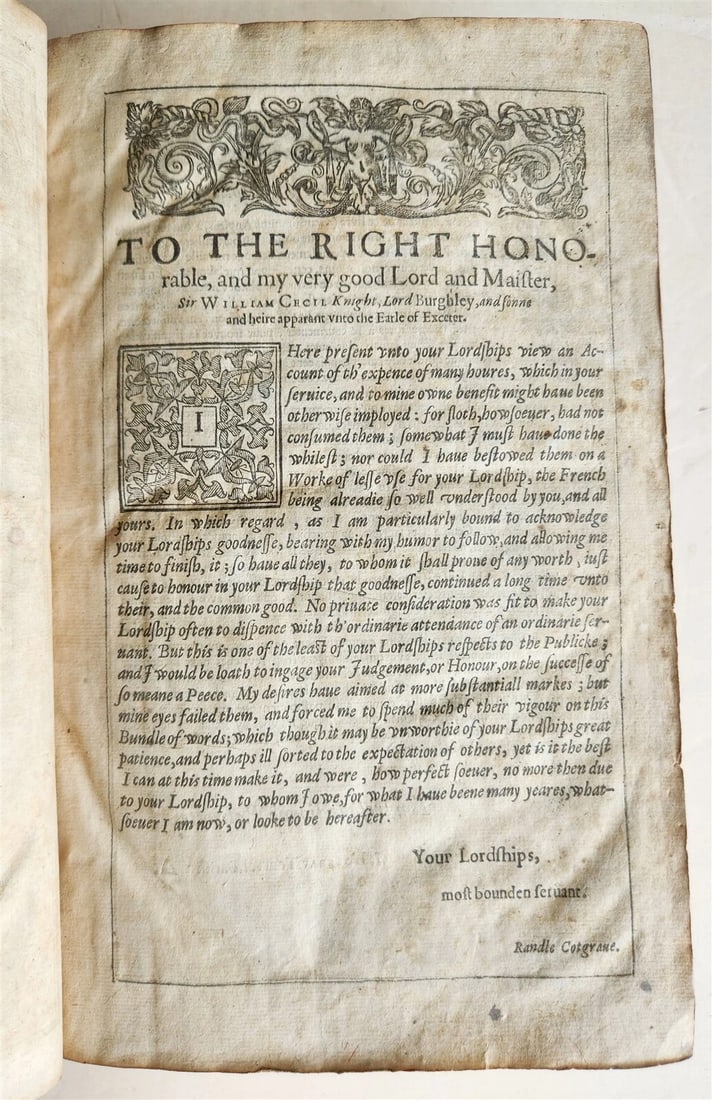 TO THE RIGHT HONO-
rable, and my very good Lord and Maiſter,
Sir WILLIAM CECIL Knight, Lord Burghley, and ſonne
and heire apparant vnto the Earle of Exceter.
I Here preſent vnto your Lordſhips view an Ac-
count of th'expence of many houres, which in your
ſeruice, and to mine owne benefit might haue been
otherwiſe imployed : for ſloth, howſoeuer, had not
conſumed them ; ſomewhat I muſt haue done the
whileſt ; nor could I haue beſtowed them on a
Worke of leſſe vſe for your Lordſhip, the French
being alreadie ſo well vnderſtood by you, and all
yours. In which regard , as I am particularly bound to acknowledge
your Lordſhips goodneſſe, bearing with my humor to follow, and allowing me
time to finiſh, it ; ſo haue all they, to whom it ſhall proue of any worth , iuſt
cauſe to honour in your Lordſhip that goodneſſe, continued a long time vnto
their, and the common good. No priuate conſideration was fit to make your
Lordſhip often to diſpence with th'ordinarie attendance of an ordinarie ſer-
uant. But this is one of the leaſt of your Lordſhips reſpects to the Publicke ;
and I would be loath to ingage your Judgement, or Honour, on the ſucceſſe of
ſo meane a Peece. My deſires haue aimed at more ſubſtantiall markes ; but
mine eyes failed them, and forced me to ſpend much of their vigour on this
Bundle of words; which though it may be vnworthie of your Lordſhips great
patience, and perhaps ill ſorted to the expectation of others, yet is it the beſt
I can at this time make it, and were , how perfect ſoeuer, no more then due
to your Lordſhip, to whom I owe, for what I haue beene many yeares, what-
ſoeuer I am now, or looke to be hereafter.
Your Lordſhips,
moſt bounden ſeruant.
Randle Cotgraue.